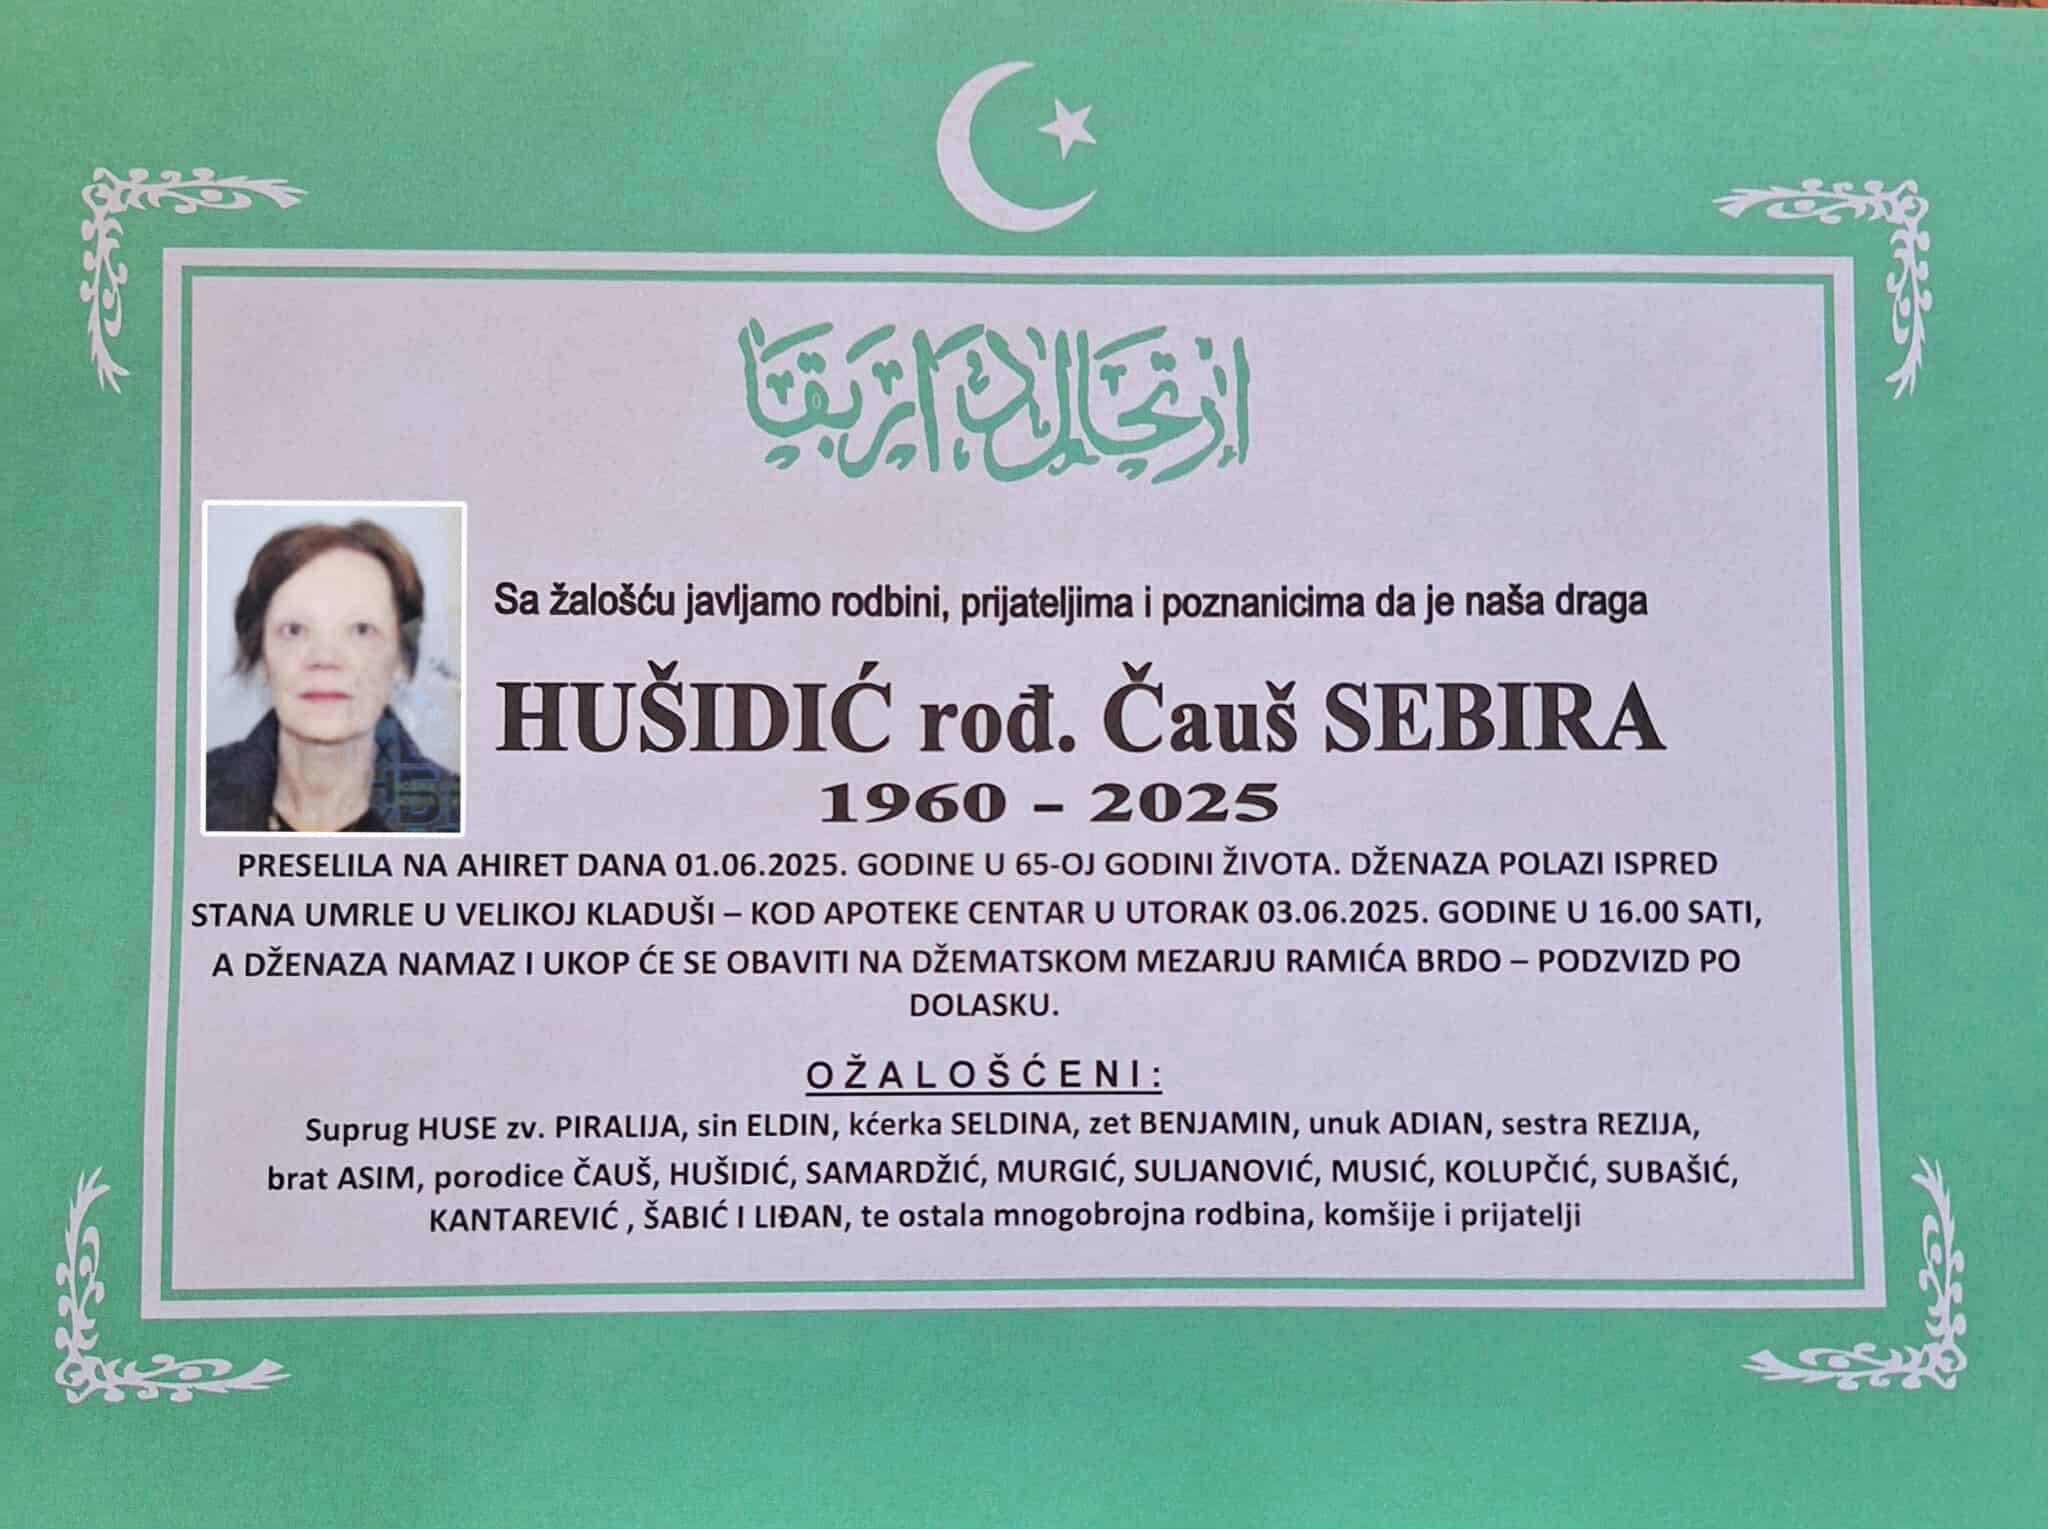 Sa žalošću javljamo rodbini, prijateljima i poznanicima da je naša draga
HUŠIDIĆ rođ. Čauš SEBIRA
1960 – 2025
PRESELILA NA AHIRET DANA 01.06.2025. GODINE U 65-OJ GODINI ŽIVOTA. DŽENAZA POLAZI ISPRED
STANA UMRLE U VELIKOJ KLADUŠI – KOD APOTEKE CENTAR U UTORAK 03.06.2025. GODINE U 16.00 SATI,
A DŽENAZA NAMAZ I UKOP ĆE SE OBAVITI NA DŽEMATSKOM MEZARJU RAMIĆA BRDO – PODZVIZD PO
DOLASKU.
OŽALOŠĆENI:
Suprug HUSE zv. PIRALIJA, sin ELDIN, kćerka SELDINA, zet BENJAMIN, unuk ADIAN, sestra REZIJA,
brat ASIM, porodice ČAUŠ, HUŠIDIĆ, SAMARDŽIĆ, MURGIĆ, SULJANOVIĆ, MUSIĆ, KOLUPČIĆ, SUBAŠIĆ,
KANTAREVIĆ , ŠABIĆ I LIĐAN, te ostala mnogobrojna rodbina, komšije i prijatelji